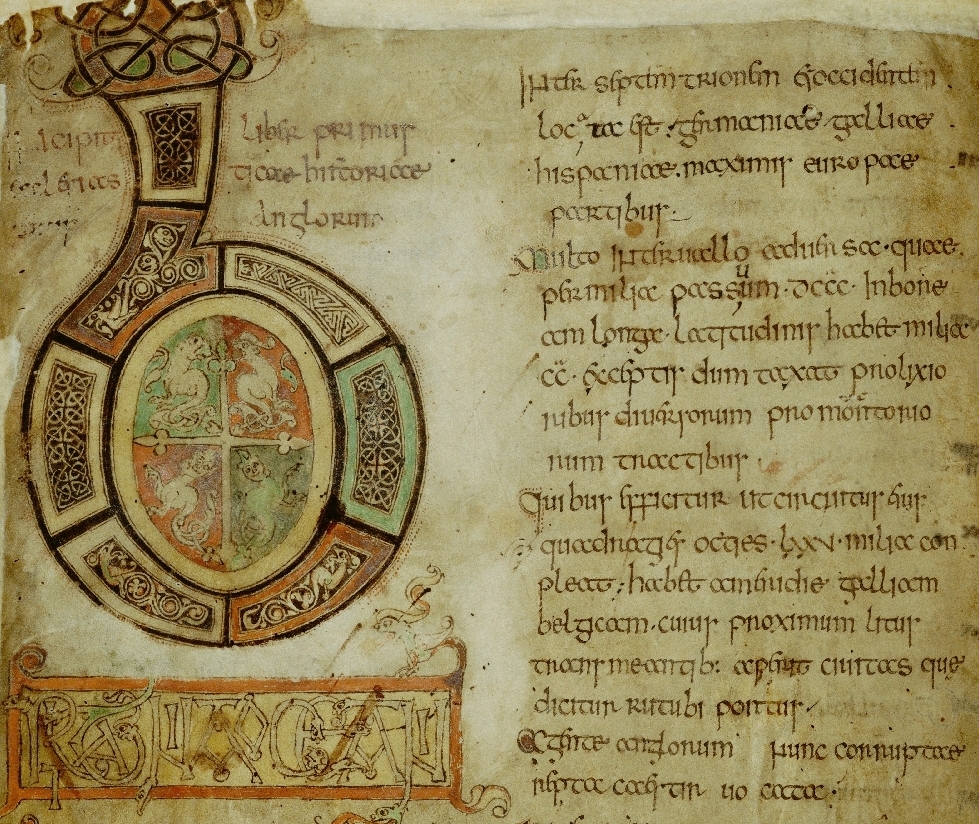 Incipit Liber primus
ecclesiasticae historiae
anglorum
inter septemtrionem & occidentem
locata est. germaniae. galliae
hispaniae. maximis europae
partibus.
Multo interuallo aduersae. quae
per milia passuum .dccc. In bore
am longa. latitudinis habet milia
cc. exceptis dum taxat prolixio
ribus diuersorum promontorio
rum tractibus
Quibus efficitur ut circuitus eius
quadragies octies. lxxv. milia con
pleat; habet a meridie galliam
belgicam. cuius proximum litus
transmeantib: aperit ciuitas que
dicitur rutubi portus.
A gente anglorum nunc corruptae
reptacaestir uocata.